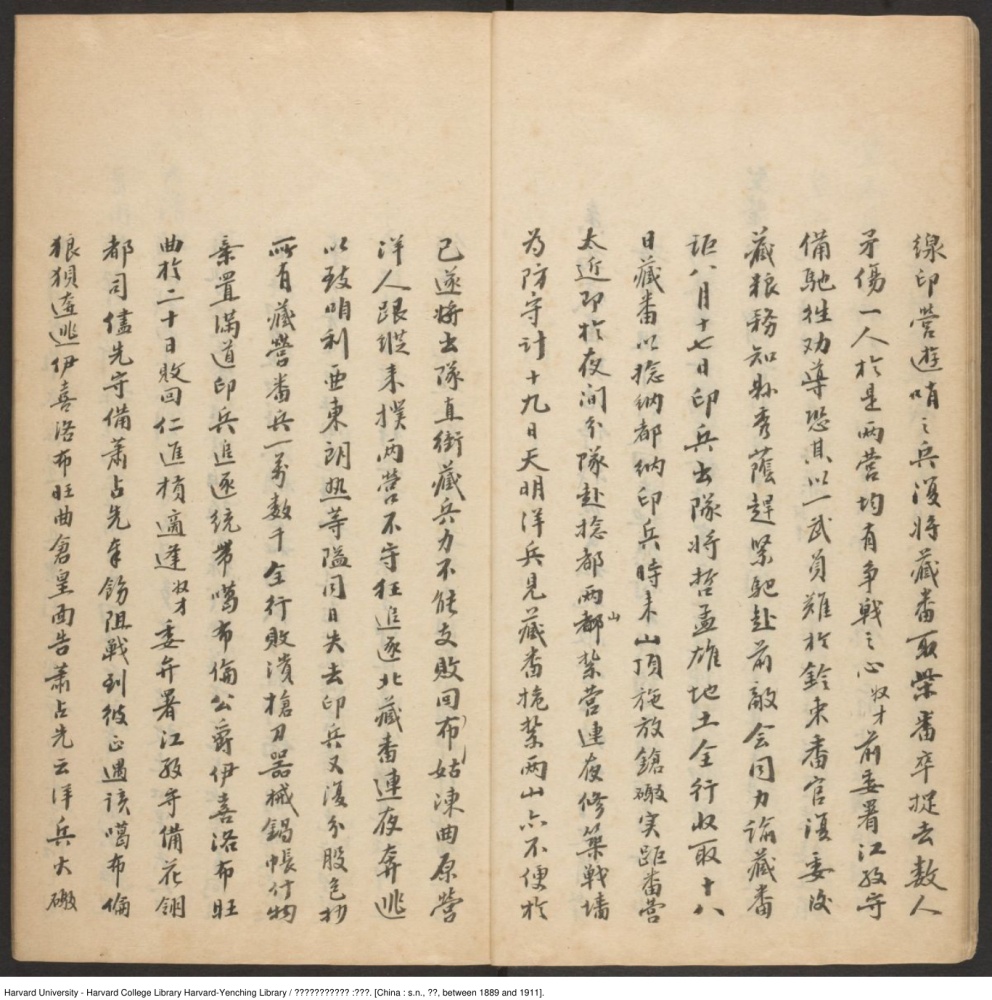 線印營遊哨之兵復將藏番取柴番卒捉去數人
矛傷一人於是兩營均有爭戰之心奴才前委署江孜守
備馳往劝導恐其以一武員難於鈐束番官復委後
藏粮務知縣秀蔭趕緊馳赴前敵会同力諭藏番
詎八月十七日印兵出隊將哲孟雄地土全行收取十八
日藏番以捻納都納印兵時來山頂施放鎗礮实距番營
太近即於夜间分隊赴捻都兩都山紮营連夜修築戰墻
為防守计十九日天明洋兵見藏番挽紮兩山亦不便於
已遂将出隊直街藏兵力不能支敗回布姑涷曲原營
洋人跟踪来撲两营不守狂追逐北藏番連夜奔逃
以致咱利亜東朗热等隘同日失去印兵又復分股包抄
所有藏營番兵一萬数千全行敗潰搶刀器械鍋帳什物
棄置滿道印兵追逐统带噶布倫公爵伊喜洛布旺
曲於二十日敗回仁進摃適逢奴才委弁署江孜守備花翎
都司儘先守備萧占先奉飭阻戰到彼正遇该噶布倫
狼狽逃伊喜洛布旺曲倉皇面告萧占先云洋兵大礮
Harvard University - Harvard College Library Harvard-Yenching Library / ??????????? :???. [China : s.n., ??, between 1889 and 1911].